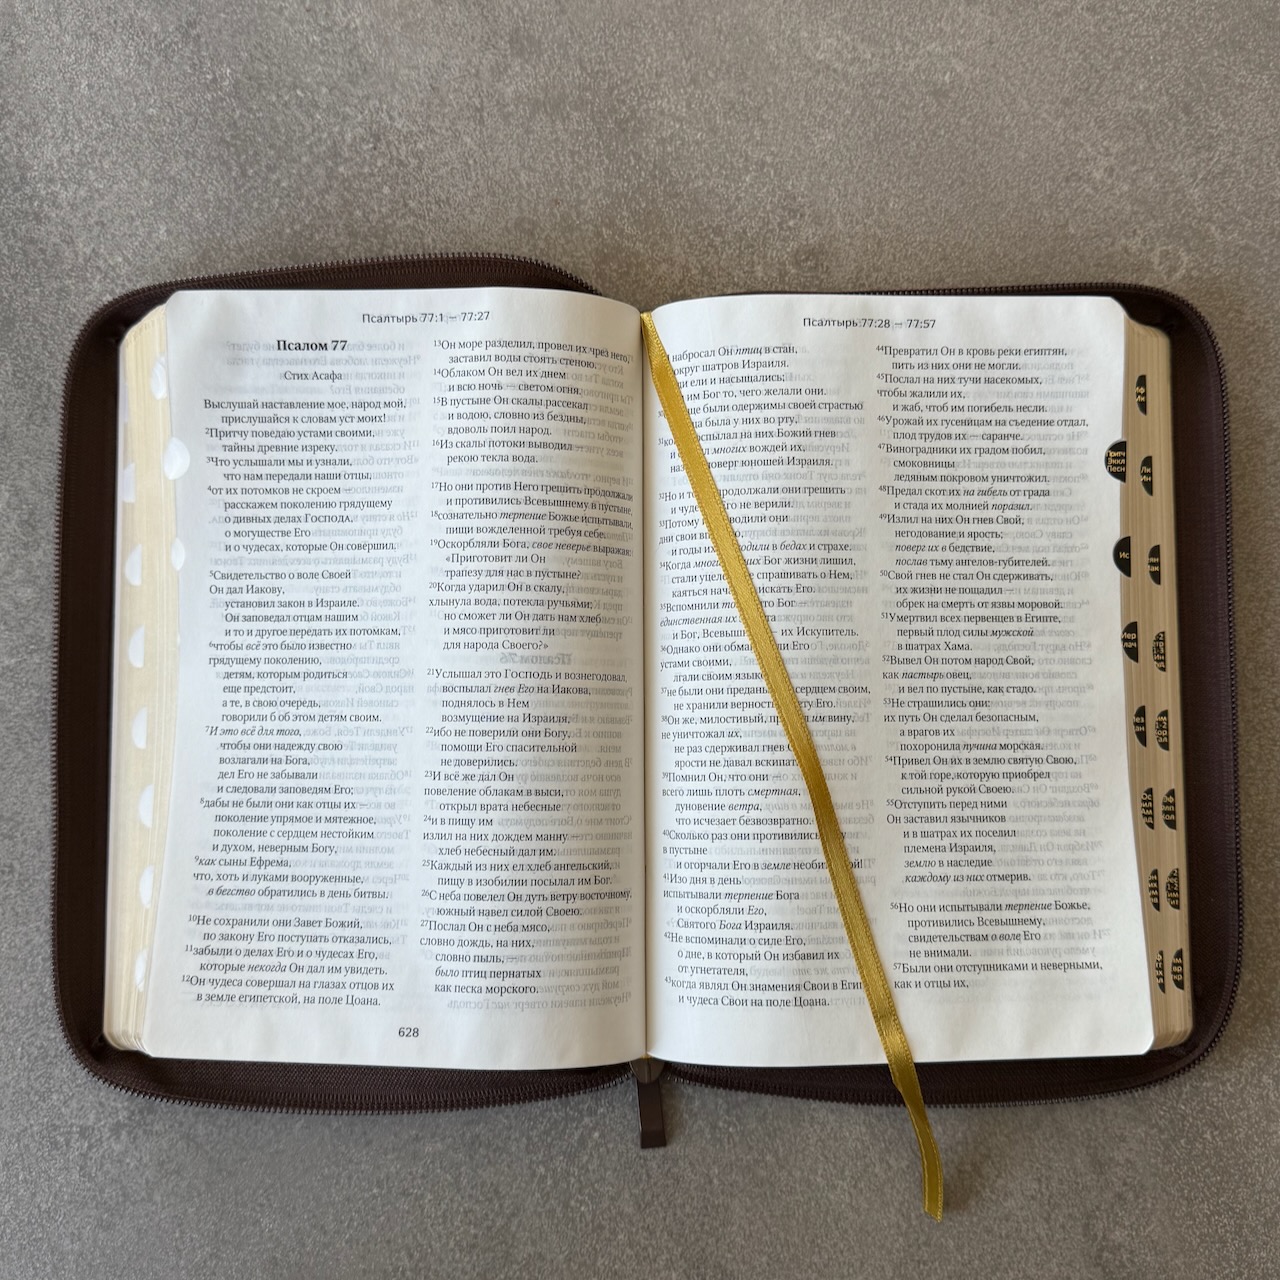 Псалтырь 77:1 — 77:27
Псалом 77
Стих Асафа
Выслушай наставление мое, народ мой,
прислушайся к словам уст моих!
²Притчу поведаю устами своими,
тайны древние изреку.
³Что услышали мы и узнали,
что нам передали наши отцы,
⁴от их потомков не скроем —
расскажем поколению грядущему
о дивных делах Господа,
о могуществе Его
и о чудесах, которые Он совершил.
⁵Свидетельство о воле Своей
Он дал Иакову,
установил закон в Израиле.
Он заповедал отцам нашим
и то и другое передать их потомкам,
⁶чтобы всё это было известно
грядущему поколению,
детям, которым родиться
еще предстоит,
а те, в свою очередь,
говорили б об этом детям своим.
⁷И это всё для того,
чтобы они надежду свою
возлагали на Бога,
дел Его не забывали
и следовали заповедям Его;
⁸дабы не были они как отцы их —
поколение упрямое и мятежное,
поколение с сердцем нестойким
и духом, неверным Богу,
⁹как сыны Ефрема,
что, хоть и луками вооруженные,
в бегство обратились в день битвы.
¹⁰Не сохранили они Завет Божий,
по закону Его поступать отказались,
¹¹забыли о делах Его и о чудесах Его,
которые некогда Он дал им увидеть.
¹²Он чудеса совершал на глазах отцов их
в земле египетской, на поле Цоана.
¹³Он море разделил, провел их чрез него,
заставил воды стоять стеною.
¹⁴Облаком Он вел их днем
и всю ночь — светом огня.
¹⁵В пустыне Он скалы рассекал
и водою, словно из бездны,
вдоволь поил народ.
¹⁶Из скалы потоки выводил —
рекою текла вода.
¹⁷Но они против Него грешить продолжали
и противились Всевышнему в пустыне,
¹⁸сознательно терпение Божье испытывали,
пищи вожделенной требуя себе.
¹⁹Оскорбляли Бога, свое неверье выражая:
«Приготовит ли Он
трапезу для нас в пустыне?
²⁰Когда ударил Он в скалу,
хлынула вода, потекла ручьями;
но сможет ли Он дать нам хлеб
и мясо приготовит ли
для народа Своего?»
²¹Услышал это Господь и вознегодовал,
воспылал гнев Его на Иакова,
поднялось в Нем
возмущение на Израиля,
²²ибо не поверили они Богу,
помощи Его спасительной
не доверились.
²³И всё же дал Он
повеление облакам в выси,
открыл врата небесные
²⁴и в пищу им
излил на них дождем манну —
хлеб небесный дал им.
²⁵Каждый из них ел хлеб ангельский,
пищу в изобилии посылал им Бог.
²⁶С неба повелел Он дуть ветру восточному,
южный навел силой Своею.
²⁷Послал Он с неба мясо,
словно дождь, на них,
словно пыль, —
было птиц пернатых
как песка морского.
628
Псалтырь 77:28 — 77:57
набросал Он птиц в стан,
округ шатров Израиля.
ели и насыщались;
им Бог то, чего желали они.
еще были одержимы своей страстью
была у них во рту,
воспылал на них Божий гнев
и многих вождей их,
поверг юношей Израиля.
³²Но и продолжали они грешить
и не верили.
³³Потому водили они
дни свои
и годы их в бедах и страхе.
³⁴Когда Бог жизни лишил,
стали спрашивать о Нем,
каяться искать Его.
³⁵Вспомнили что Бог —
единственная их
и Бог, их Искупитель.
³⁶Однако они Его
устами своими,
лгали своим
³⁷не были они преданы сердцем своим,
не хранили верности Его.
³⁸Он же, милостивый, им вину,
не уничтожал их,
не раз сдерживал гнев
ярости не давал вскипать.
³⁹Помнил Он, что они —
всего лишь плоть смертная,
дуновение ветра,
что исчезает безвозвратно.
⁴⁰Сколько раз они противились
в пустыне
и огорчали Его в земле
⁴¹Изо дня в день
испытывали терпение Бога
и оскорбляли Его,
Святого Бога Израиля.
⁴²Не вспоминали о силе Его,
о дне, в который Он избавил их
от угнетателя,
⁴³когда являл Он знамения Свои в
и чудеса Свои на поле Цоана.
⁴⁴Превратил Он в кровь реки египтян,
пить из них они не могли.
⁴⁵Послал на них тучи насекомых,
чтобы жалили их,
и жаб, чтоб им погибель несли.
⁴⁶Урожай их гусеницам на съедение отдал,
плод трудов их — саранче.
⁴⁷Виноградники их градом побил,
смоковницы
ледяным покровом уничтожил.
⁴⁸Предал скот их на гибель от града
и стада их молнией поразил.
⁴⁹Излил на них Он гнев Свой,
негодование и ярость;
поверг их в бедствие,
послав тьму ангелов-губителей.
⁵⁰Свой гнев не стал Он сдерживать,
их жизни не пощадил —
обрек на смерть от язвы моровой.
⁵¹Умертвил всех первенцев в Египте,
первый плод силы мужской
в шатрах Хама.
⁵²Вывел Он потом народ Свой,
как пастырь овец,
и вел по пустыне, как стадо.
⁵³Не страшились они:
их путь Он сделал безопасным,
а врагов их
похоронила пучина морская.
⁵⁴Привел Он их в землю святую Свою,
к той горе, которую приобрел
сильной рукой Своею.
⁵⁵Отступить перед ними
Он заставил язычников
и в шатрах их поселил
племена Израиля,
землю в наследие
каждому из них отмерив.
⁵⁶Но они испытывали терпение Божье,
противились Всевышнему,
свидетельствам о воле Его
не внимали.
⁵⁷Были они отступниками и неверными,
как и отцы их,
Притч
Эккл
Песн
Ли
Ин
Ис
Иер
Плач